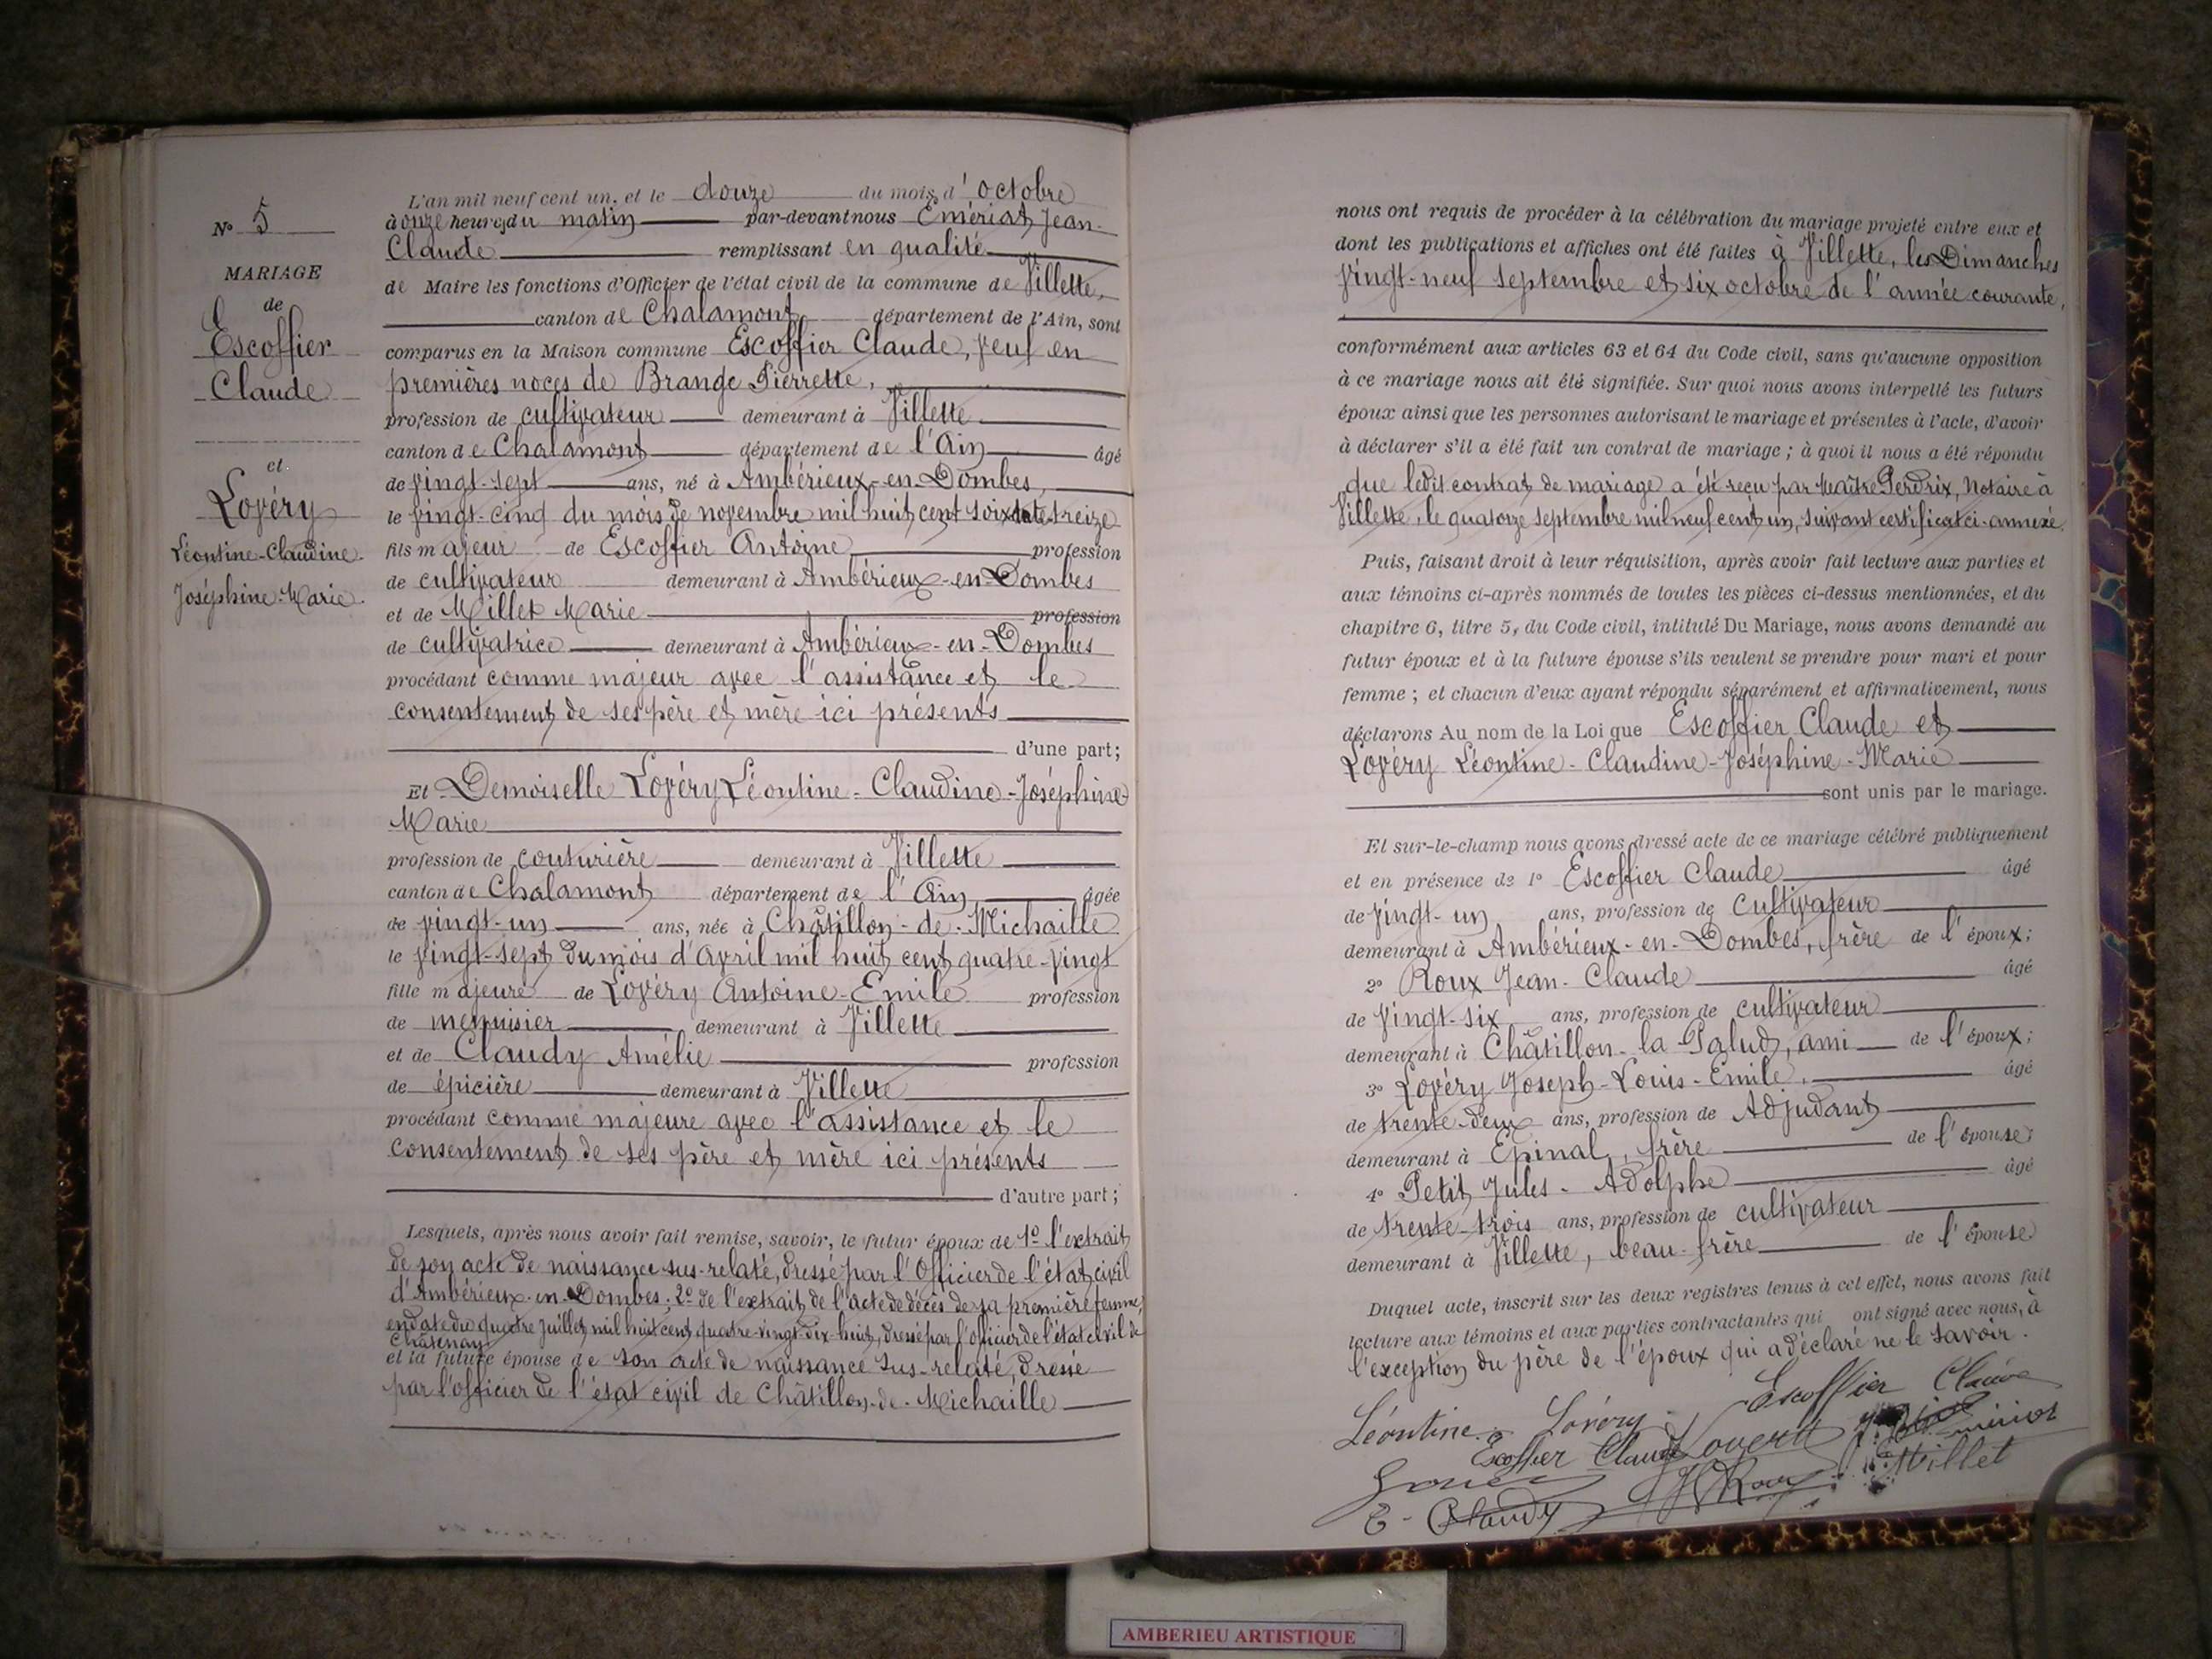 N° 5
MARIAGE
de
Escoffier
Claude
et
Lovéry
Léontine-Claudine-
Joséphine-Marie
L'an mil neuf cent un, et le douze du mois d'octobre
à onze heures du matin par-devant nous Emériat Jean-
Claude remplissant en qualité
de Maire les fonctions d'Officier de l'état civil de la commune de Villette,
canton de Chalamont département de l'Ain, sont
comparus en la Maison commune Escoffier Claude, veuf en
premières noces de Brange Pierrette,
profession de cultivateur demeurant à Villette
canton de Chalamont département de l'Ain âgé
de vingt-sept ans, né à Ambérieux-en-Dombes,
le vingt-cinq du mois de novembre mil huit cent soixante treize
fils majeur de Escoffier Antoine profession
de cultivateur demeurant à Ambérieux-en-Dombes
et de Millet Marie profession
de cultivatrice demeurant à Ambérieux-en-Dombes
procédant comme majeur avec l'assistance et le
consentement de ses père et mère ici présents
d'une part;
Et Demoiselle Lovéry Léontine-Claudine-Joséphine-
Marie
profession de couturière demeurant à Villette
canton de Chalamont département de l'Ain âgée
de vingt-un ans, née à Châtillon-de-Michaille
le vingt-sept du mois d'Avril mil huit cent quatre-vingt
fille majeure de Lovéry Antoine-Emile profession
de menuisier demeurant à Villette
et de Claudy Amélie profession
de épicière demeurant à Villette
procédant comme majeure avec l'assistance et le
consentement de ses père et mère ici présents
d'autre part;
Lesquels, après nous avoir fait remise, savoir, le futur époux de 1° l'extrait
de son acte de naissance sus-relaté, dressé par l'Officier de l'état civil
d'Ambérieux-en-Dombes; 2° de l'extrait de l'acte de décès de sa première femme,
en date du quatre juillet mil huit cent quatre-vingt-dix-huit, dressé par l'officier de l'état civil de
Châtenay
et la future épouse de son acte de naissance sus-relaté, dressé
par l'officier de l'état civil de Châtillon-de-Michaille
nous ont requis de procéder à la célébration du mariage projeté entre eux et
dont les publications et affiches ont été faites à Villette, les Dimanches
vingt-neuf septembre et six octobre de l'année courante,
conformément aux articles 63 et 64 du Code civil, sans qu'aucune opposition
à ce mariage nous ait été signifiée. Sur quoi nous avons interpellé les futurs
époux ainsi que les personnes autorisant le mariage et présentes à l'acte, d'avoir
à déclarer s'il a été fait un contrat de mariage; à quoi il nous a été répondu
que ledit contrat de mariage a été reçu par Maître Perdrix, Notaire à
Villette, le quatorze septembre mil neuf cent un, suivant certificat ci-annexé.
Puis, faisant droit à leur réquisition, après avoir fait lecture aux parties et
aux témoins ci-après nommés de toutes les pièces ci-dessus mentionnées, et du
chapitre 6, titre 5, du Code civil, intitulé Du Mariage, nous avons demandé au
futur époux et à la future épouse s'ils veulent se prendre pour mari et pour
femme; et chacun d'eux ayant répondu séparément et affirmativement, nous
déclarons Au nom de la Loi que Escoffier Claude et
Lovéry Léontine-Claudine-Joséphine-Marie
sont unis par le mariage.
Et sur-le-champ nous avons dressé acte de ce mariage célébré publiquement
et en présence de 1° Escoffier Claude âgé
de vingt-un ans, profession de cultivateur
demeurant à Ambérieux-en-Dombes, frère de l'époux;
2° Roux Jean-Claude âgé
de vingt-six ans, profession de cultivateur
demeurant à Châtillon-la Palud, ami de l'époux;
3° Lovéry Joseph-Louis-Emile, âgé
de trente-deux ans, profession de Adjudant
demeurant à Epinal, frère de l'épouse;
4° Petit Jules-Adolphe âgé
de trente-trois ans, profession de cultivateur
demeurant à Villette, beau-frère de l'épouse
Duquel acte, inscrit sur les deux registres tenus à cet effet, nous avons fait
lecture aux témoins et aux parties contractantes qui ont signé avec nous, à
l'exception du père de l'époux qui a déclaré ne le savoir.
Léontine Lovéry Escoffier Claude
Escoffier Claude
Millet
E. Claudy
AMBERIEU ARTISTIQUE